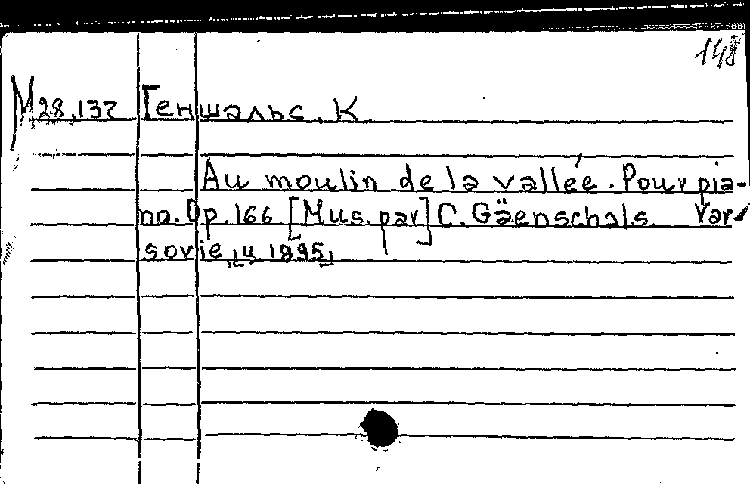 148
М 28,137 Геншальс, К.
Au moulin de la vallée. Pour pia-
no. Op. 166 [Mus. par] C. Gäenschals. Var-
sovie, 1895,